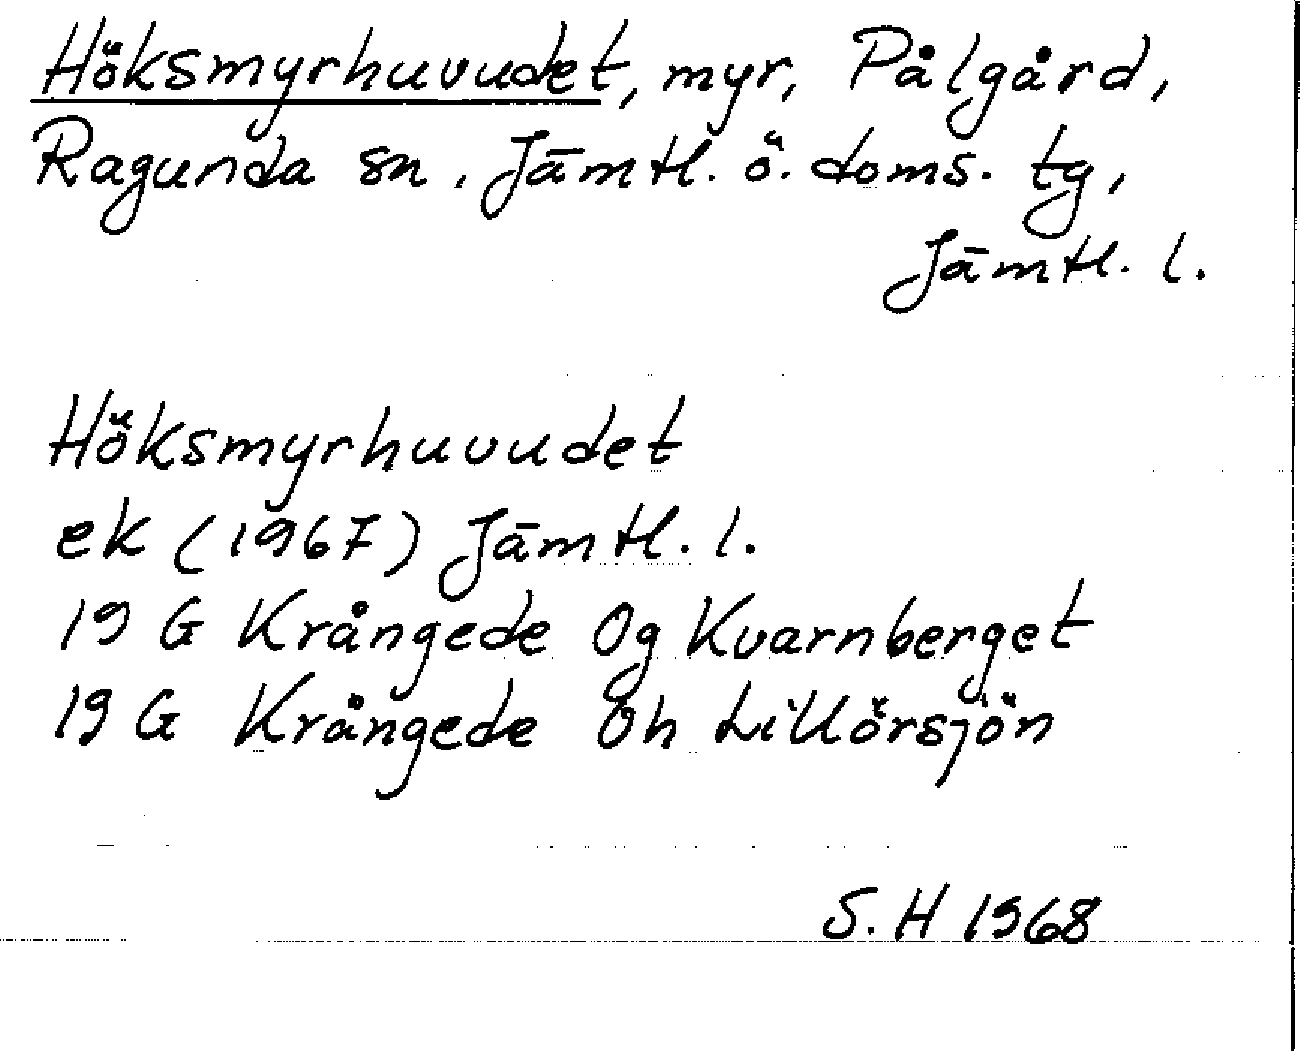 Höksmyrhuvudet, myr, Pålgård,
Ragunda sn, Jämtl. ö. doms. tg,
Jämtl. l.
Höksmyrhuvudet
ek (1967) Jämtl. l.
19 G Krångede Og Kvarnberget
19 G Krångede Oh Lillörsjön
S. H 1968